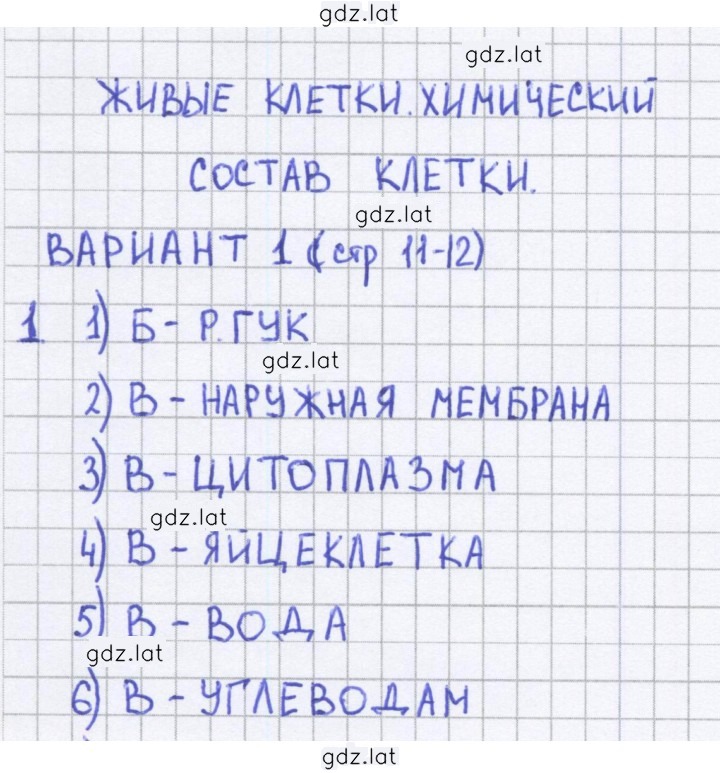 gdz.lat
gdz.lat
ЖИВЫЕ КЛЕТКИ. ХИМИЧЕСКИЙ
СОСТАВ КЛЕТКИ.
gdz.lat
ВАРИАНТ 1 (стр 11-12)
1 1) Б - Р. ГУК
gdz.lat
2) В - НАРУЖНАЯ МЕМБРАНА
3) В - ЦИТОПЛАЗМА
gdz.lat
4) В - ЯЙЦЕКЛЕТКА
5) В - ВОДА
gdz.lat
6) В - УГЛЕВОДАМ
gdz.lat